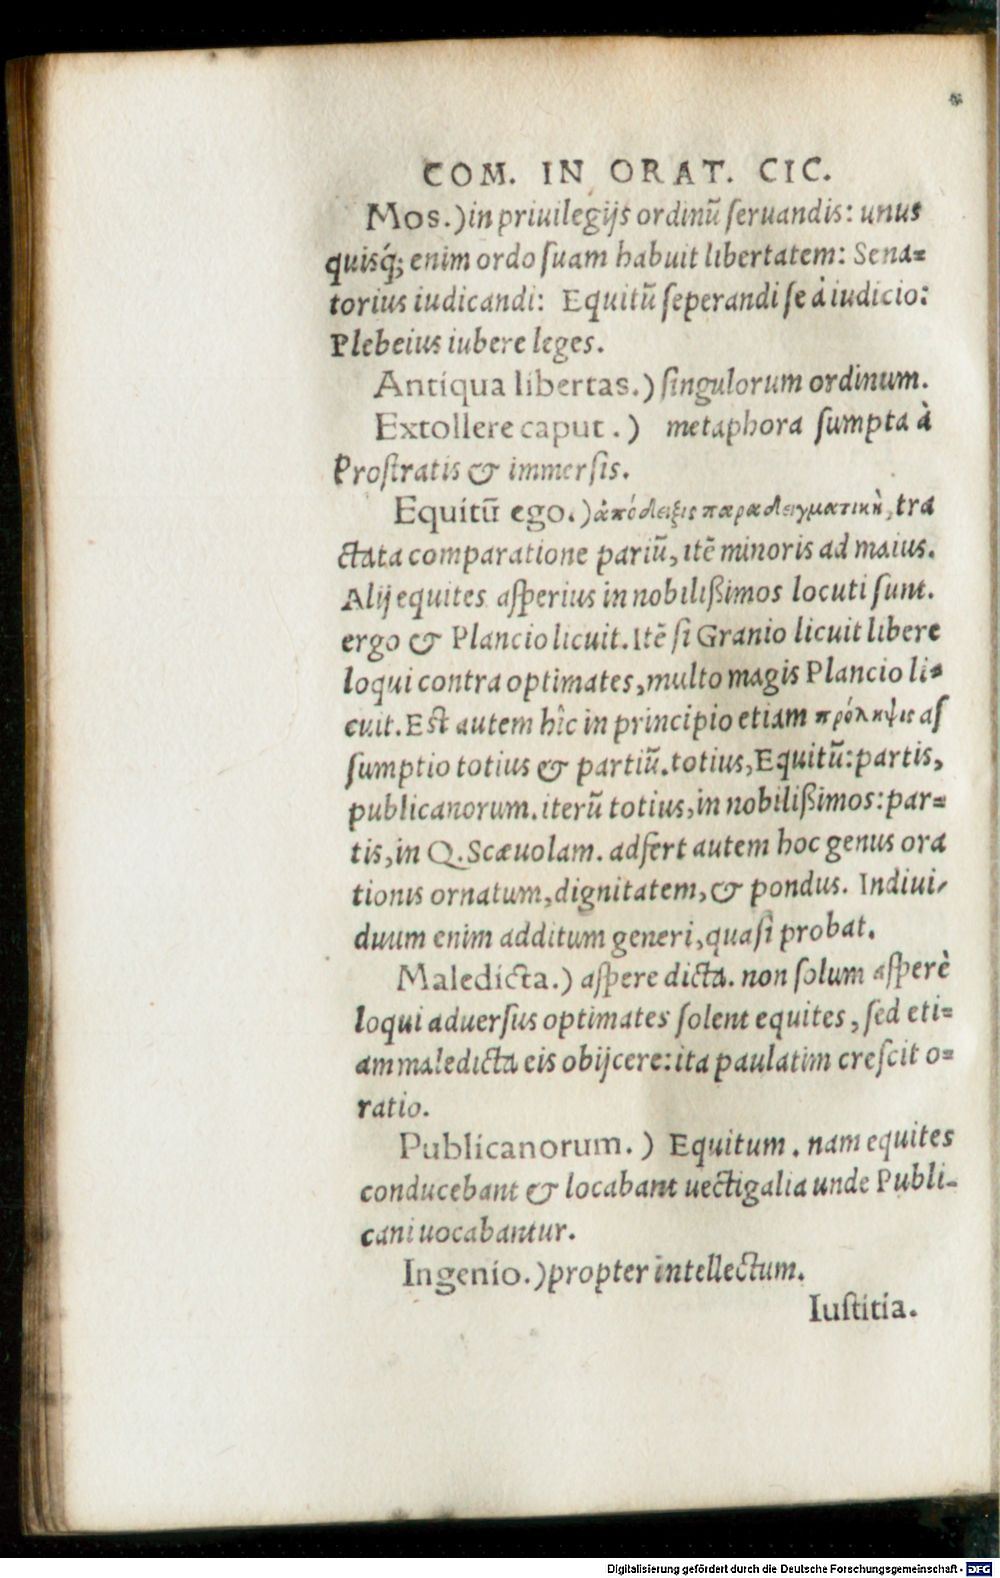 COM. IN ORAT. CIC.
Mos.) in priuilegijs ordinū ſeruandis: unus
quisq́; enim ordo ſuam habuit libertatem: Sena=
torius iudicandi: Equitū ſeperandi ſe à iudicio:
Plebeius iubere leges.
Antiqua libertas.) ſingulorum ordinum.
Extollere caput.) metaphora ſumpta à
Proſtratis & immerſis.
Equitū ego.) ἀπόδειξις παραδειγματικὴ, tra
ctata comparatione pariū, itē minoris ad maius.
Alij equites aſperius in nobilißimos locuti ſunt.
ergo & Plancio licuit. Itē ſi Granio licuit libere
loqui contra optimates, multo magis Plancio li=
cuit. Eſt autem hîc in principio etiam πρόληψις aſ
ſumptio totius & partiū. totius, Equitū: partis,
publicanorum. iterū totius, in nobilißimos: par=
tis, in Q. Scæuolam. adfert autem hoc genus ora
tionis ornatum, dignitatem, & pondus. Indiui/
duum enim additum generi, quaſi probat.
Maledicta.) aſpere dicta. non ſolum aſperè
loqui aduerſus optimates ſolent equites, ſed eti=
am maledicta eis obijcere: ita paulatim creſcit o=
ratio.
Publicanorum.) Equitum. nam equites
conducebant & locabant uectigalia unde Publi-
cani uocabantur.
Ingenio.) propter intellectum.
Iuſtitia.
Digitalisierung gefördert durch die Deutsche Forschungsgemeinschaft - DFG